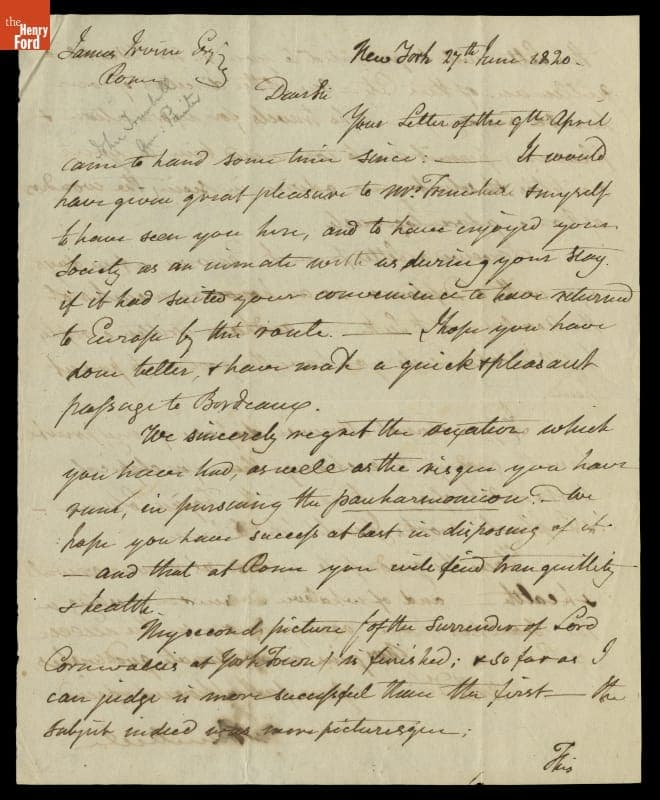 the
Henry
Ford
James Irvine Esqr
Rome
John Trumbull
Painter
New York 27th June 1820.
Dear Sir
Your Letter of the 9th April
came to hand some time since: — It would
have given great pleasure to Mrs Trumbull & myself
to have seen you here, and to have enjoyed your
Society as an inmate with us during your stay.
if it had suited your convenience to have returned
to Europe by this route. — I hope you have
done better, & have made a quick & pleasant
passage to Bordeaux.
We sincerely regret the vexation which
you have had, as well as the risque you have
run, in pursuing the panharmonicon. — We
hope you have success at last in disposing of it
— and that at Rome you will find tranquillity
& health.
My second picture (of the Surrender of Lord
Cornwallis at York Town) is finished; & so far as I
can judge is more successful than the first — the
subject indeed was more picturesque;
This